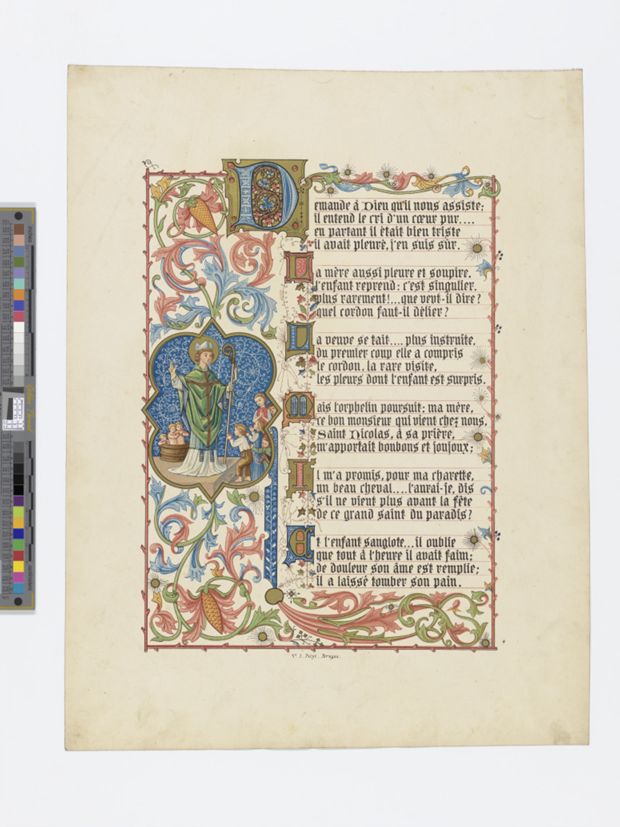 Demande à Dieu qu'il nous assiste;
il entend le cri d'un cœur pur....
en partant il était bien triste
il avait pleuré, j'en suis sûr.
La mère aussi pleure et soupire,
l'enfant reprend: c'est singulier.
plus rarement!...que veut-il dire?
quel cordon faut-il délier?
La veuve se tait.... plus instruite,
du premier coup elle a compris
le cordon, la rare visite,
les pleurs dont l'enfant est surpris.
Mais l'orphelin poursuit: ma mère,
ce bon monsieur qui vient chez nous,
Saint Nicolas, à sa prière,
m'apportait bonbons et joujoux;
Il m'a promis, pour ma charette,
un beau cheval....l'aurai-je, dis
s'il ne vient plus avant la fête
de ce grand saint du paradis?
Et l'enfant sanglote...il oublie
que tout à l'heure il avait faim;
de douleur son âme est remplie;
il a laissé tomber son pain.
Bruges.